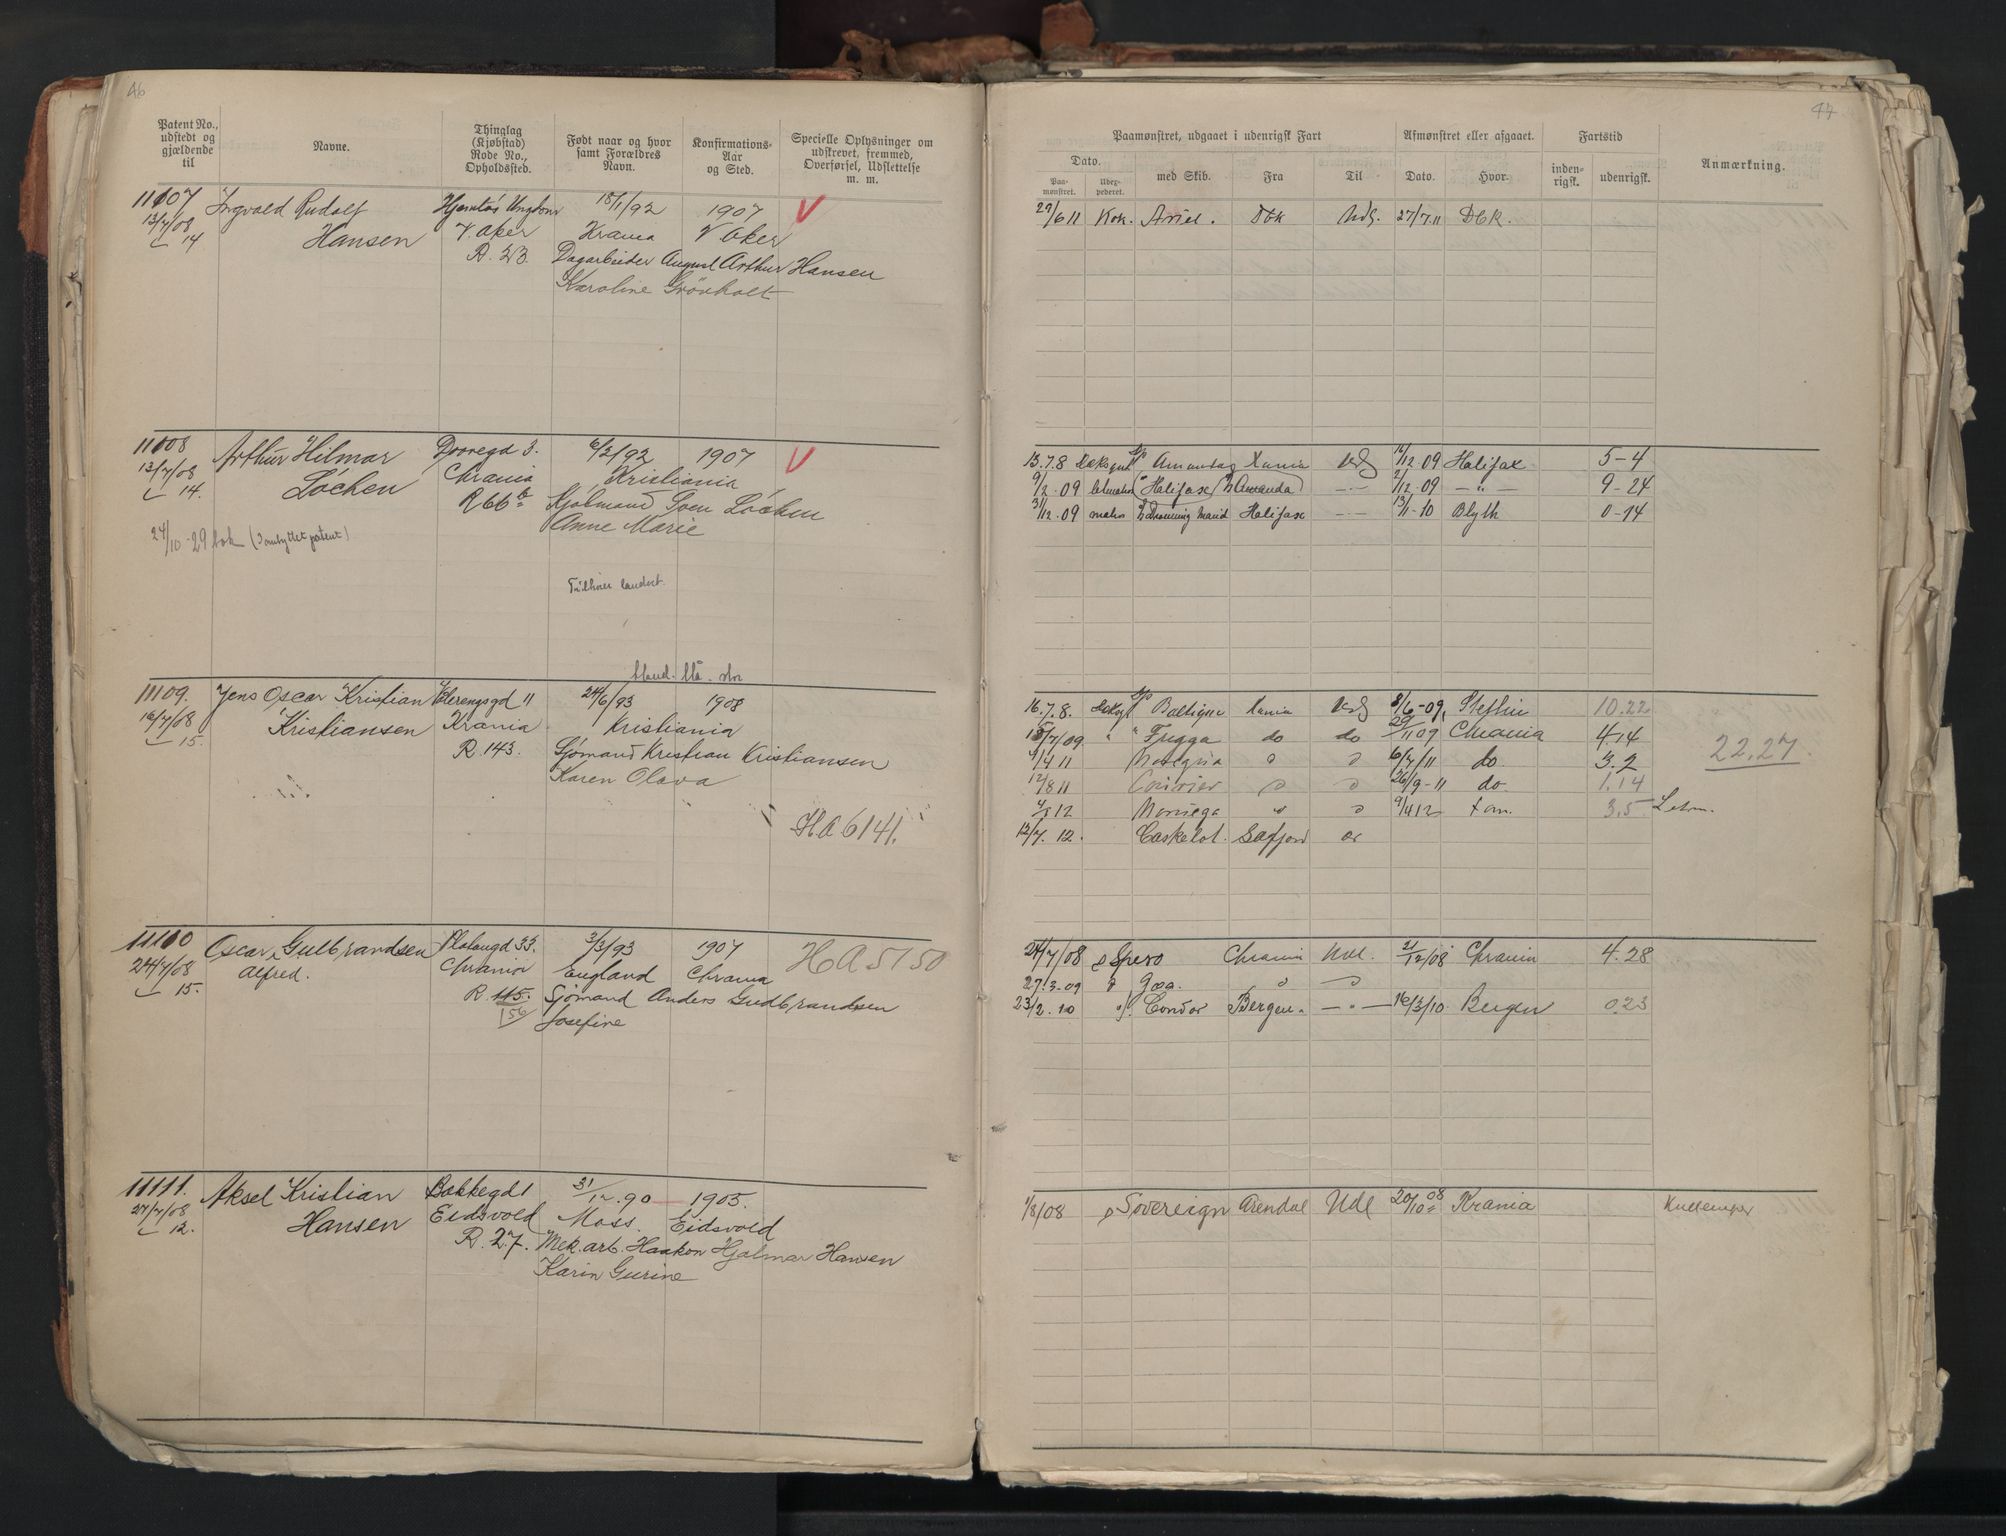 46
Patent No., udstedt og gjældende til
Navne.
Thinglag (Kjøbstad) Rode No., Opholdssted.
Født naar og hvor samt Forældres Navn.
Konfirmations-Aar og Sted.
Specielle Oplysninger om udskrevet, fremmed, Overførsel, Udslettelse m. m.
11107 Ingvald Rudolf 18/1/92 1907 V
13/7/08 Hansen V. Aker Krania V Aker
14 R. 23. Dagarbeider August Arthur Hansen
Karoline
11108 Arthur Hilmar 3. 6/2/92 1907 V
13/7/08 Løchen Chrania Kristiania
14. R 66 b Sven Løchen
Anne Marie
24/10-29 bok (ombyttet patent)
11109. Jens Oscar Kristian 11 24/6/93 1908
16/7/08 Kristiansen Krania Kristiania
15. R. 143. Sjømand Kristian Kristiansen
Karen Olava
H.A 6141.
11110 Oscar Gulbrandsen 33. 3/3/93 1907 HA 5150
24/7/08 Alfred. Chrania England Chrania
15. R. 115. Sjømand Anders Gudbrandsen
156 Josefine
11111. Aksel Kristian Bakkegd 1 31/12.90 1905.
27/7/08 Hansen Eidsvold Moss. Eidsvold
12. R. 27. Mek. arb. Haakon Hjalmar Hansen
Karin Gurine
47
Paamønstret, udgaaet i udenrigsk Fart
Afmønstret eller afgaaet.
Fartstid
Anmærkning.
Dato.
Paa-mønstret.
med Skib.
Fra
Til
Dato.
Hvor.
inden-rigsk.
udenrigsk.
29/6 11 Kok. Ariel. Dbk Udl. 27/7.11 Dbk.
13.7.8 Amanda Xania Udl 12.09 Halifax 5-4
9/2.09 (Halifax) Amanda 2/12.09 9-24
31/12.09 Dronning Maud Halifax 13/1-10 Blyth 0-14
16.7.8. Xania Udl 8/6-09, Stettin 10.22
7/09 " " Frigga do do 29/11 09 Chrania 4.14 22.27
1/4 11 6/7/11 do 3.2
12/8 11 26/9-11 do. 1.14
12 Noruega 9/4 12 3.5
12/7. 12. Caskelot.
24/7/08 Spero Chrania Udl. 21/12/08 Chrania 4.28
27.3.09 Goa.
23/2.10 Condor Bergen 16/3/10 Bergen 0.23
1/8/08 Sovereign Arendal Udl 20/10 08 Krania